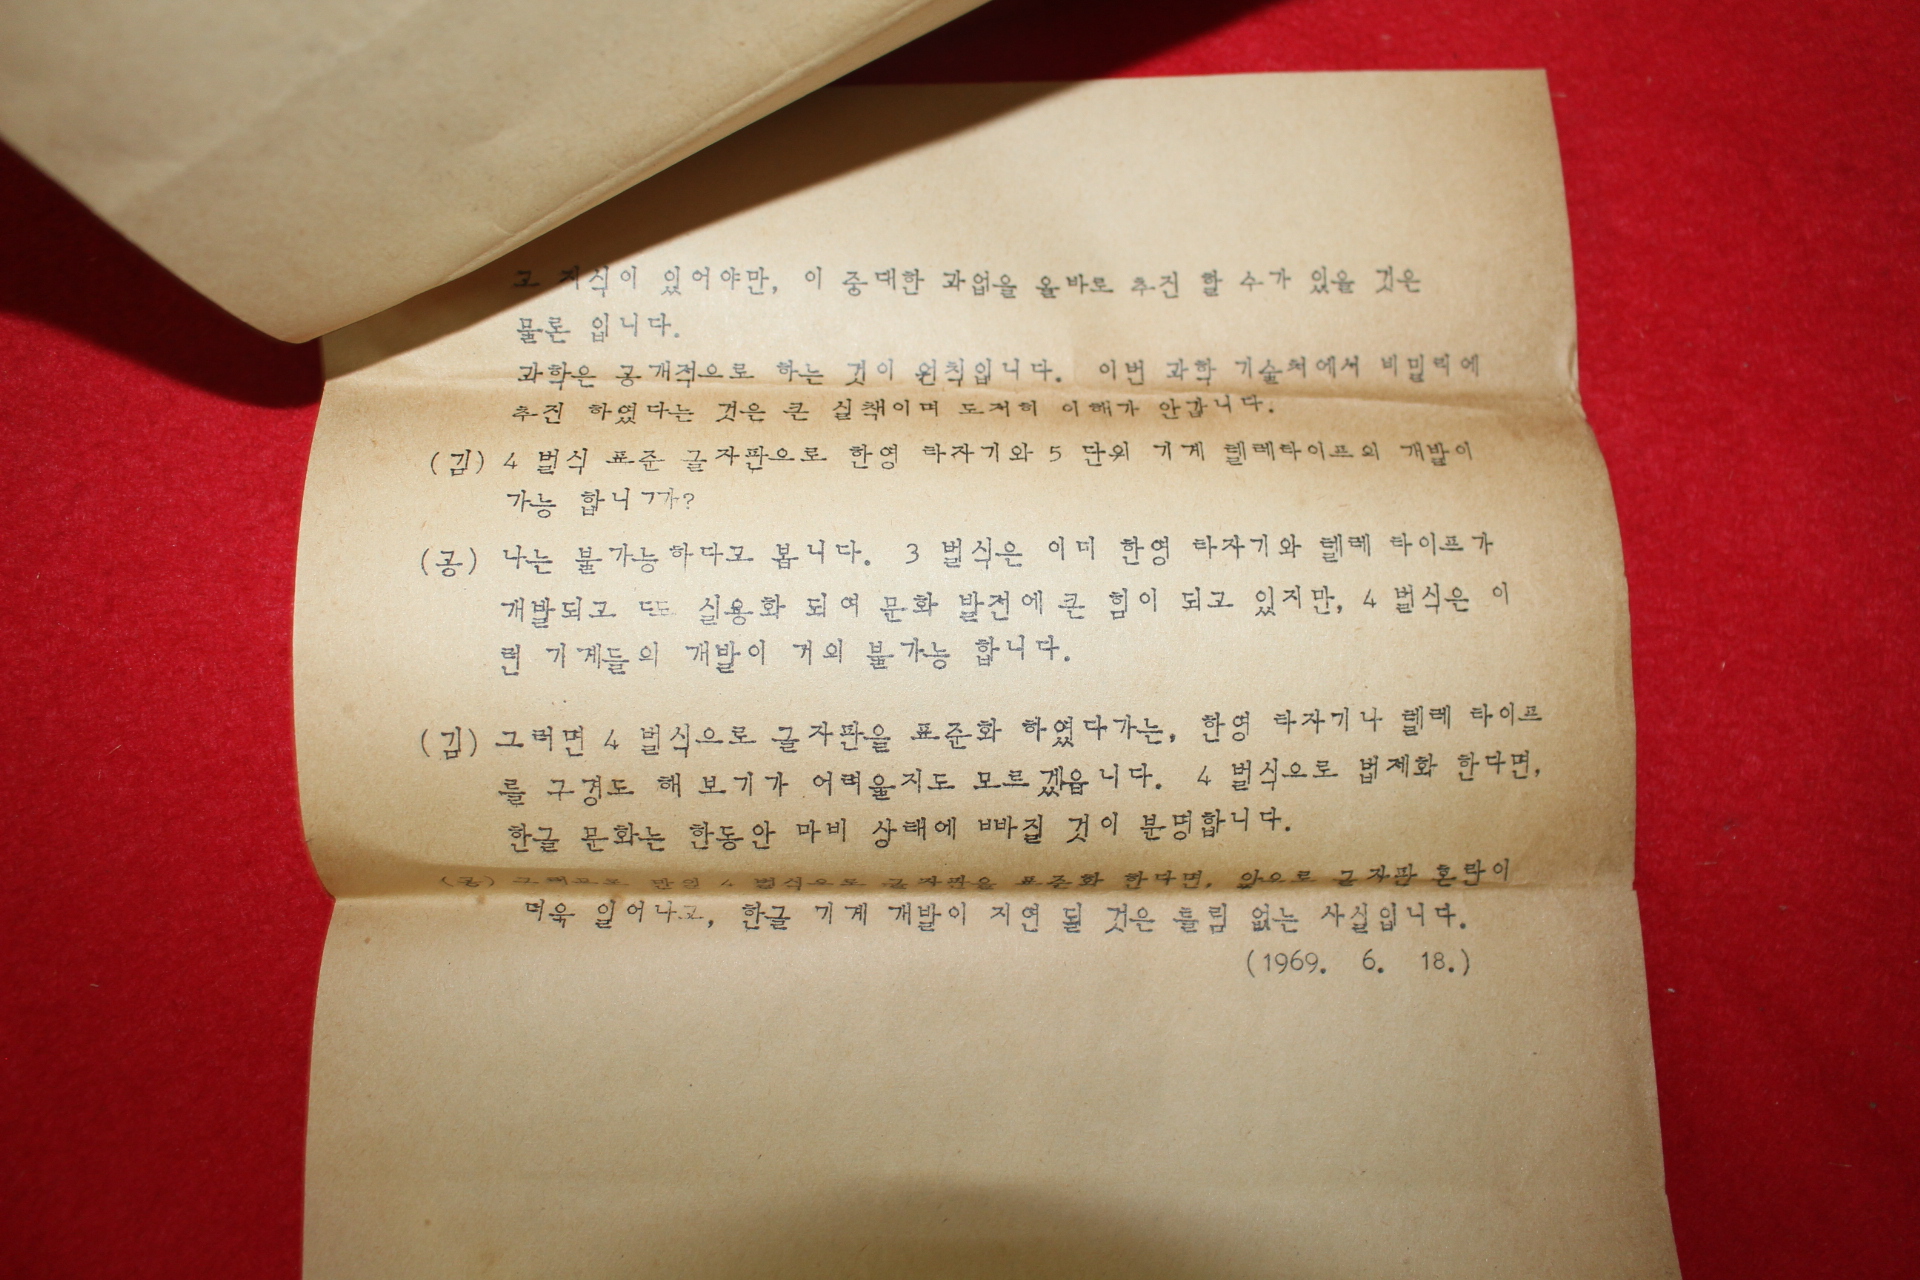 고 지식이 있어야만, 이 중대한 과업을 올바로 추진 할 수가 있을 것은
물론 입니다.
과학은 공개적으로 하는 것이 원칙입니다. 이번 과학 기술처에서 비밀리에
추진 하였다는 것은 큰 실책이며 도저히 이해가 안갑니다.
(김) 4 벌식 표준 글자판으로 한영 타자기와 5 단위 기계 텔레타이프의 개발이
가능 합니까?
(공) 나는 불가능하다고 봅니다. 3 벌식은 이미 한영 타자기와 텔레 타이프가
개발되고 또 실용화 되여 문화 발전에 큰 힘이 되고 있지만, 4 벌식은 이
런 기계들의 개발이 거의 불가능 합니다.
(김) 그러면 4 벌식으로 글자판을 표준화 하였다가는, 한영 타자기나 텔레 타이프
를 구경도 해 보기가 어려울지도 모르겠읍니다. 4 벌식으로 법제화 한다면,
한글 문화는 한동안 마비 상태에 빠질 것이 분명합니다.
(공) 그러므로 만일 4 벌식으로 글자판을 표준화 한다면, 앞으로 글자판 혼란이
더욱 일어나고, 한글 기계 개발이 지연 될 것은 틀림 없는 사실입니다.
(1969. 6. 18.)